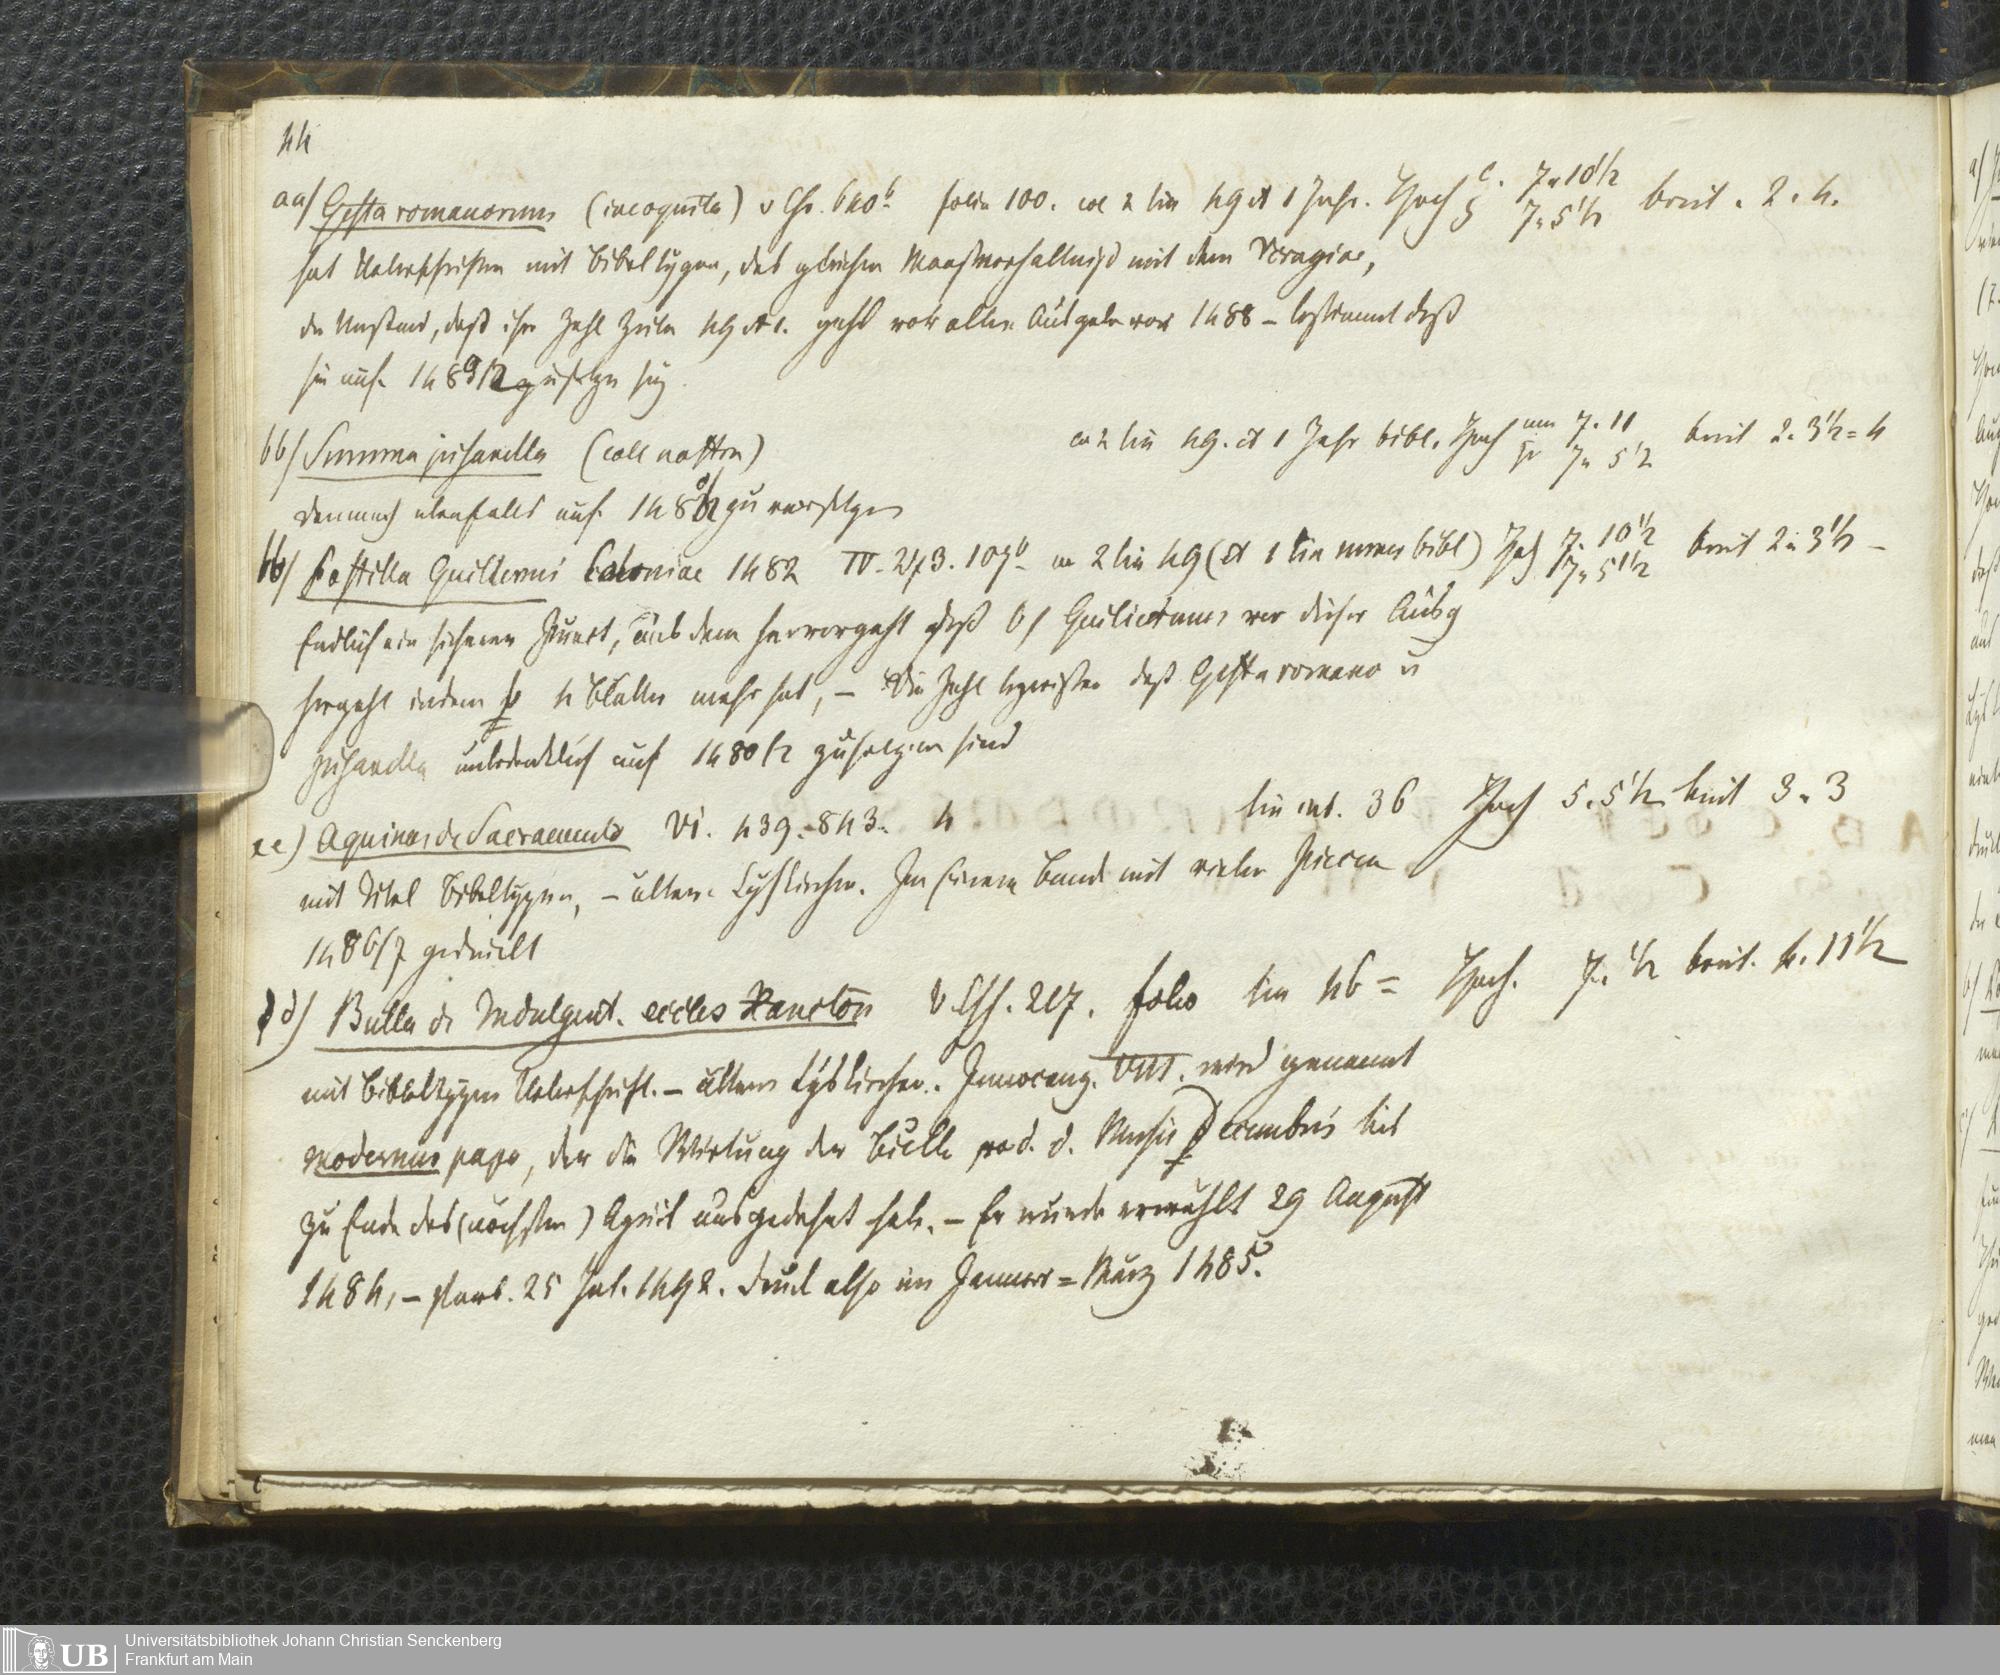 44
aa) Gesta romanorum (incognita) v Chr. 640b folia 100. col 2 lin 49 et 1 Inhr. Hoch 7" 10 1/2 7" 5 1/2 breit . 2 . 4.
hat Ueberschriften mit Bibeltypen, das gleichen Maasverhältniß mit dem Voragine,
der Umstand, daß ihre Zahl Zeilen 49 et 1. geht vor allen Ausgaben vor 1488 – bestimmt daß
sie auf 1489/2 zu setzen sey.
bb) Summa pisanella (coll nostra) co 2 lin 49. et 1 Jnhr bibl. Hoch 7. 11 7" 5 1/2 breit 2. 3 1/2 = 4
demnach ebenfalls auf 1480/2 zu versetzen
bb) Postilla Guillermi Coloniae 1482 IV. 273. 109b co 2 lin 49 (et 1 lin bibl) Hoch 7. 10 1/2 7" 5 1/2 breit 2" 3 1/2 –
Endlich ein sicherer Punct, aus dem hervorgeht daß vor dieser Ausg
hergeht indem 4 Blätter mehr hat, – Die Zahl daß Gesta romano u
pisanella unbedenklich auf 1480/2 zu setzen sind
cc) Aquinas de Sacramento VI. 439.-843. 4 lin int. 36 Hoch 5. 5 1/2 breit 3. 3
mit Titel Bibeltypen, – ältere Lyskirchen. In Einem Bande mit vielen Piecen
1486/7 gedruckt
dd) Bulla de Indulgent. eccles Xancton 217. folio lin 46 = Hoch. 7. 1/2 breit. 4. 11 1/2
mit Bibeltypen Ueberschrift. – ältere Lyskirchen. Innocenz. VIII. wird genannt
modernus papa, der die Wirkung der Bulle d. d. Decembris bis
zu Ende des (nächsten) April ausgedehnt habe. – Er wurde erwählt 29 August
1484, – starb. 25 Jul. 1492. Druck also im Januar = März 1485.
Universitätsbibliothek Johann Christian Senckenberg
UB Frankfurt am Main